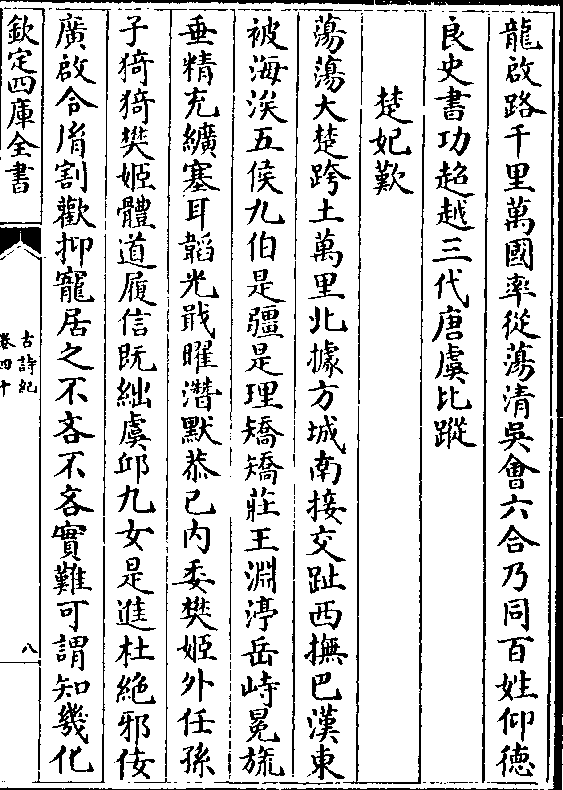 龍啟路千里萬國率從蕩清吳會六合乃同百姓仰德
良史書功超越三代唐虞比蹤
楚妃歎
蕩蕩大楚跨土萬里北據方城南接交趾西撫巴漢東
被海涘五侯九伯是疆是理矯矯莊王淵渟岳峙冕旒
垂精充纊塞耳韜光戢曜潛默恭己内委樊姬外任孫
子猗猗樊姬體道履信既絀虞邱九女是進杜絶邪佞
廣啟令𦙍割歡抑寵居之不吝不吝實難可謂知幾化
欽定四庫全書
古詩紀
卷四十
八